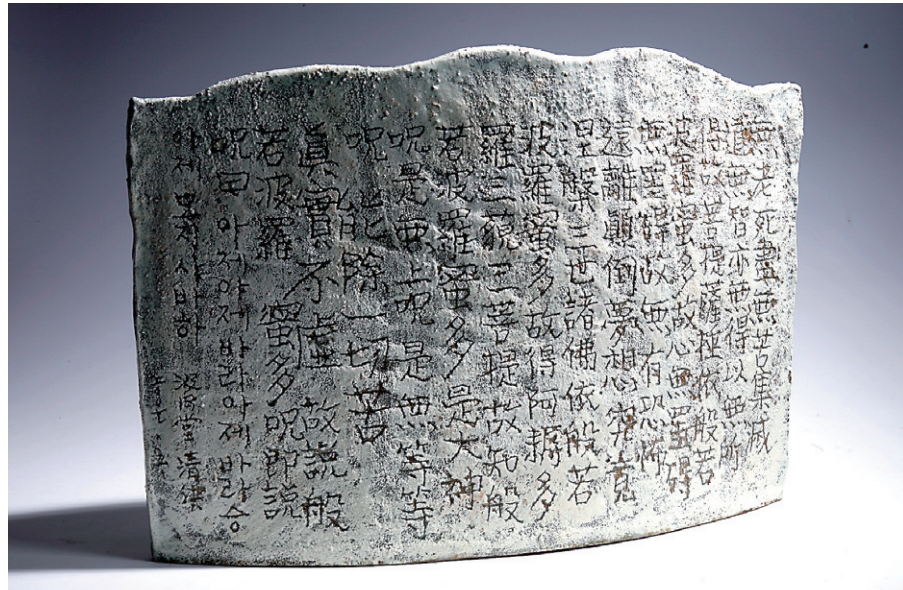 無老死盡無苦集滅
道無智亦無得以無所
得故菩提薩埵依般若
波羅蜜多故心無罣碍
無罣碍故無有恐怖
遠離顚倒夢想究竟
涅槃三世諸佛依般若
波羅蜜多故得阿耨多
羅三藐三菩提故知般
若波羅蜜多是大神
呪是無上呪 是無等等
呪 能除一切苦
眞實不虛 故說般
若波羅 蜜多呪即說
呪曰 아제아제바라아제 바라승
아제 모지사바하